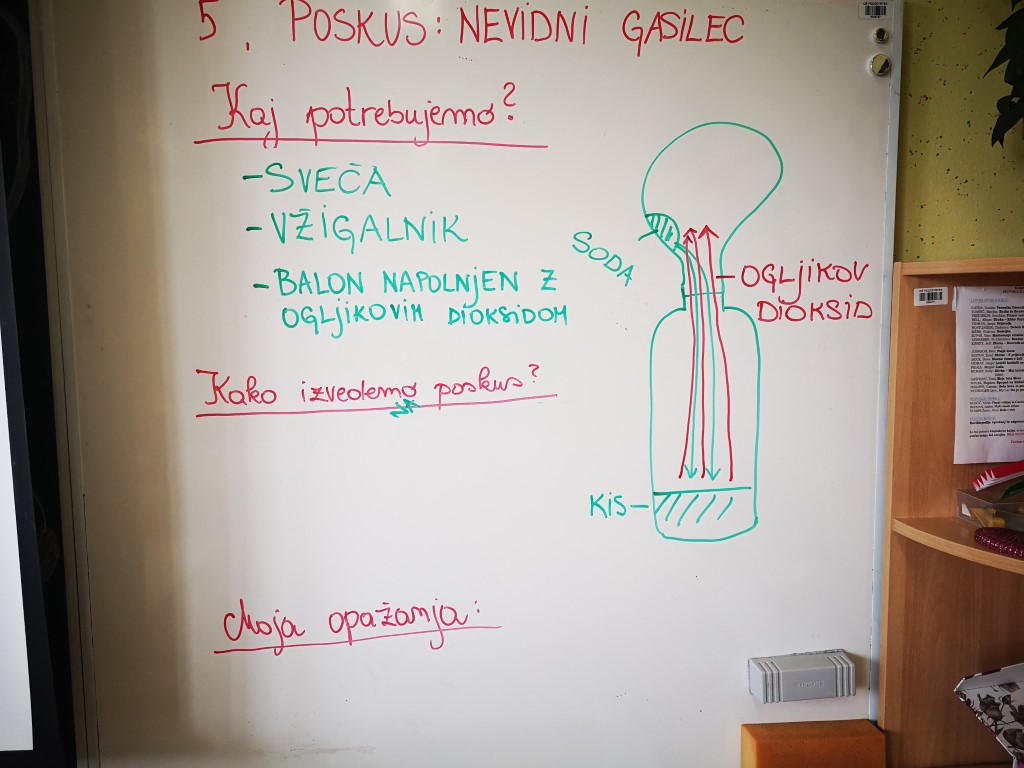 5. POSKUS: NEVIDNI GASILEC
Kaj potrebujemo?
- SVEČA
- VŽIGALNIK
- BALON NAPOLNJEN Z
OGLJIKOVIM DIOKSIDOM
SODA
OGLJIKOV
DIOKSID
Kako izvedemo poskus?
KIS
Moja opažanja: